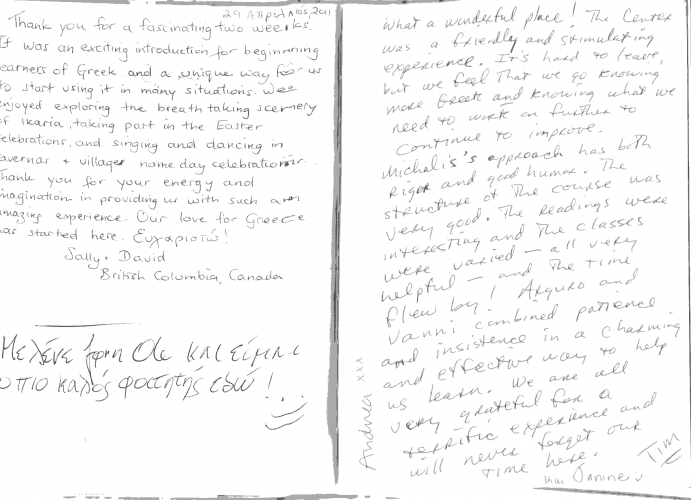 29 Απριλίος, 2011
Thank you for a fascinating two weeks.
It was an exciting introduction for beginning
earners of Greek and a unique way for us
to start using it in many situations. We
enjoyed exploring the breath taking scenery
of Ikaria, taking part in the Easter
celebrations, and singing and dancing in
avernas + village name day celebrations.
Thank you for your energy and
imagination in providing us with such an
amazing experience. Our love for Greece
has started here. Ευχαριστώ!
Sally, David
British Columbia, Canada
Με λένε και είμαι
ο πιο καλός φοιτητής εδώ!...
What a wonderful place! The Center
was a friendly and stimulating
experience. It's hard to leave,
but we feel that we go knowing
more Greek and knowing what we
need to work on further to
continue to improve.
Michalis's approach has both
rigor and good humor. The
structure of the course was
very good. The readings were
interesting and the classes
were varied — all very
helpful — and the time
flew by! Arguro and
Vanni combined patience
and insistence in a charming
and effective way to help
us learn. We are all
very grateful for a
terrific experience and
will never forget our
time here.
Andrea xxx
Tim